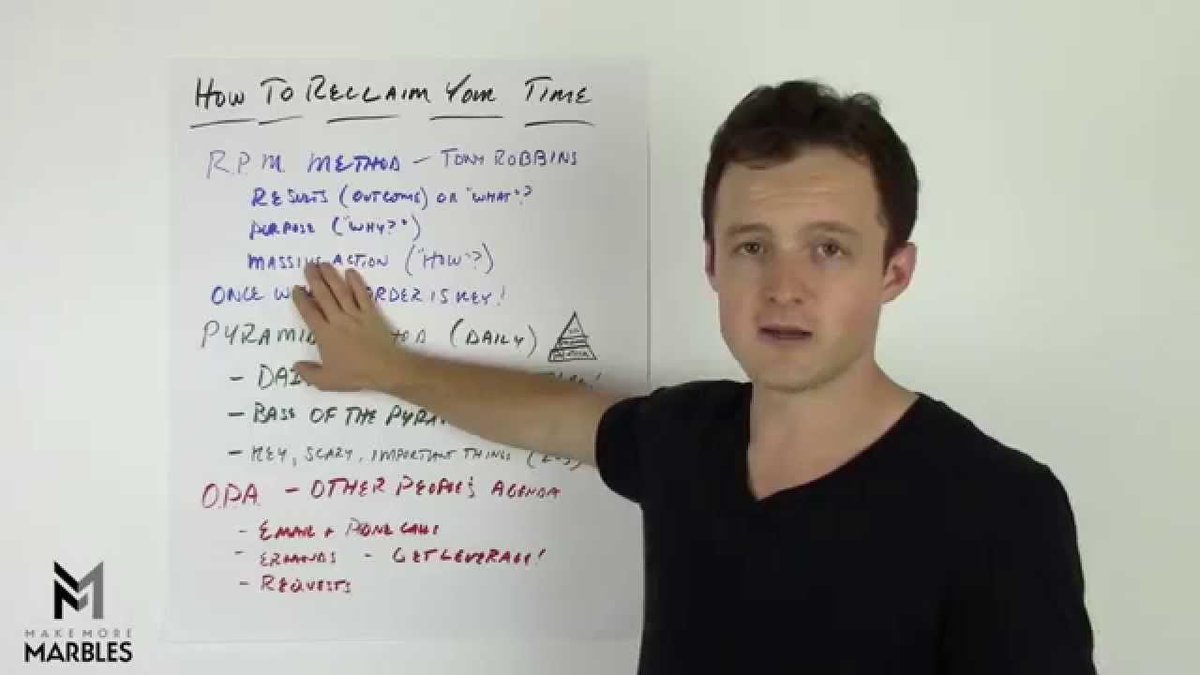 How To Reclaim Your Time
R.P.M. METHOD - TONY ROBBINS
RESULTS (OUTCOME) OR "WHAT"?
PURPOSE ("WHY?")
MASSIVE ACTION ("HOW"?)
ONCE ORDER IS KEY!
PYRAMID (DAILY)
- BASE OF THE
- KEY, SCARY, IMPORTANT THINGS
O.P.A. - OTHER PEOPLE'S AGENDA
- EMAIL + PHONE CALLS
- ERRANDS - GET LEVERAGE!
- REQUESTS
M
MAKE MORE
MARBLES